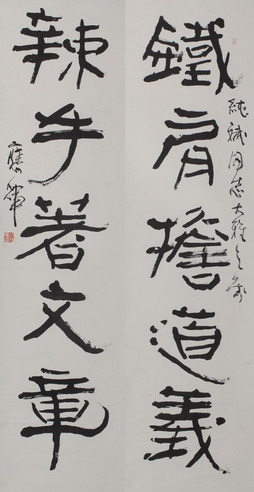 鐵肩擔道義
同志大雅之
辣手著文章